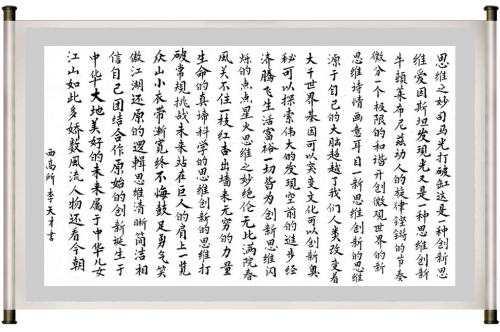 思维之妙司马光打破缸这是一种创新思
维爱因斯坦发现光又是一种思维创新
牛顿莱布尼兹动人的旋律铿锵的节奏
微分一个极限的和谐开创微观世界的新
思维诗情画意耳目一新思维创新的思维
源于自己的大脑超越了我们人类改变着
大千世界基因可以突变文化可以创新奥
秘可以探索伟大的发现空前的进步经
济腾飞生活富裕一切皆为创新思维闪
烁的点点星火思维之妙绝伦无比满院春
风关不住一枝红杏出墙来无穷的力量
生命的真谛科学的思维创新的思维打
破常规挑战未来站在巨人的肩上一览
众山小衣带渐宽终不悔鼓足勇气笑
傲江湖还原的逻辑思维清晰简洁相
信自己团结合作原始的创新诞生于
中华大地美好的未来属于中华儿女
江山如此多娇数风流人物还看今朝
西高所 李天才书